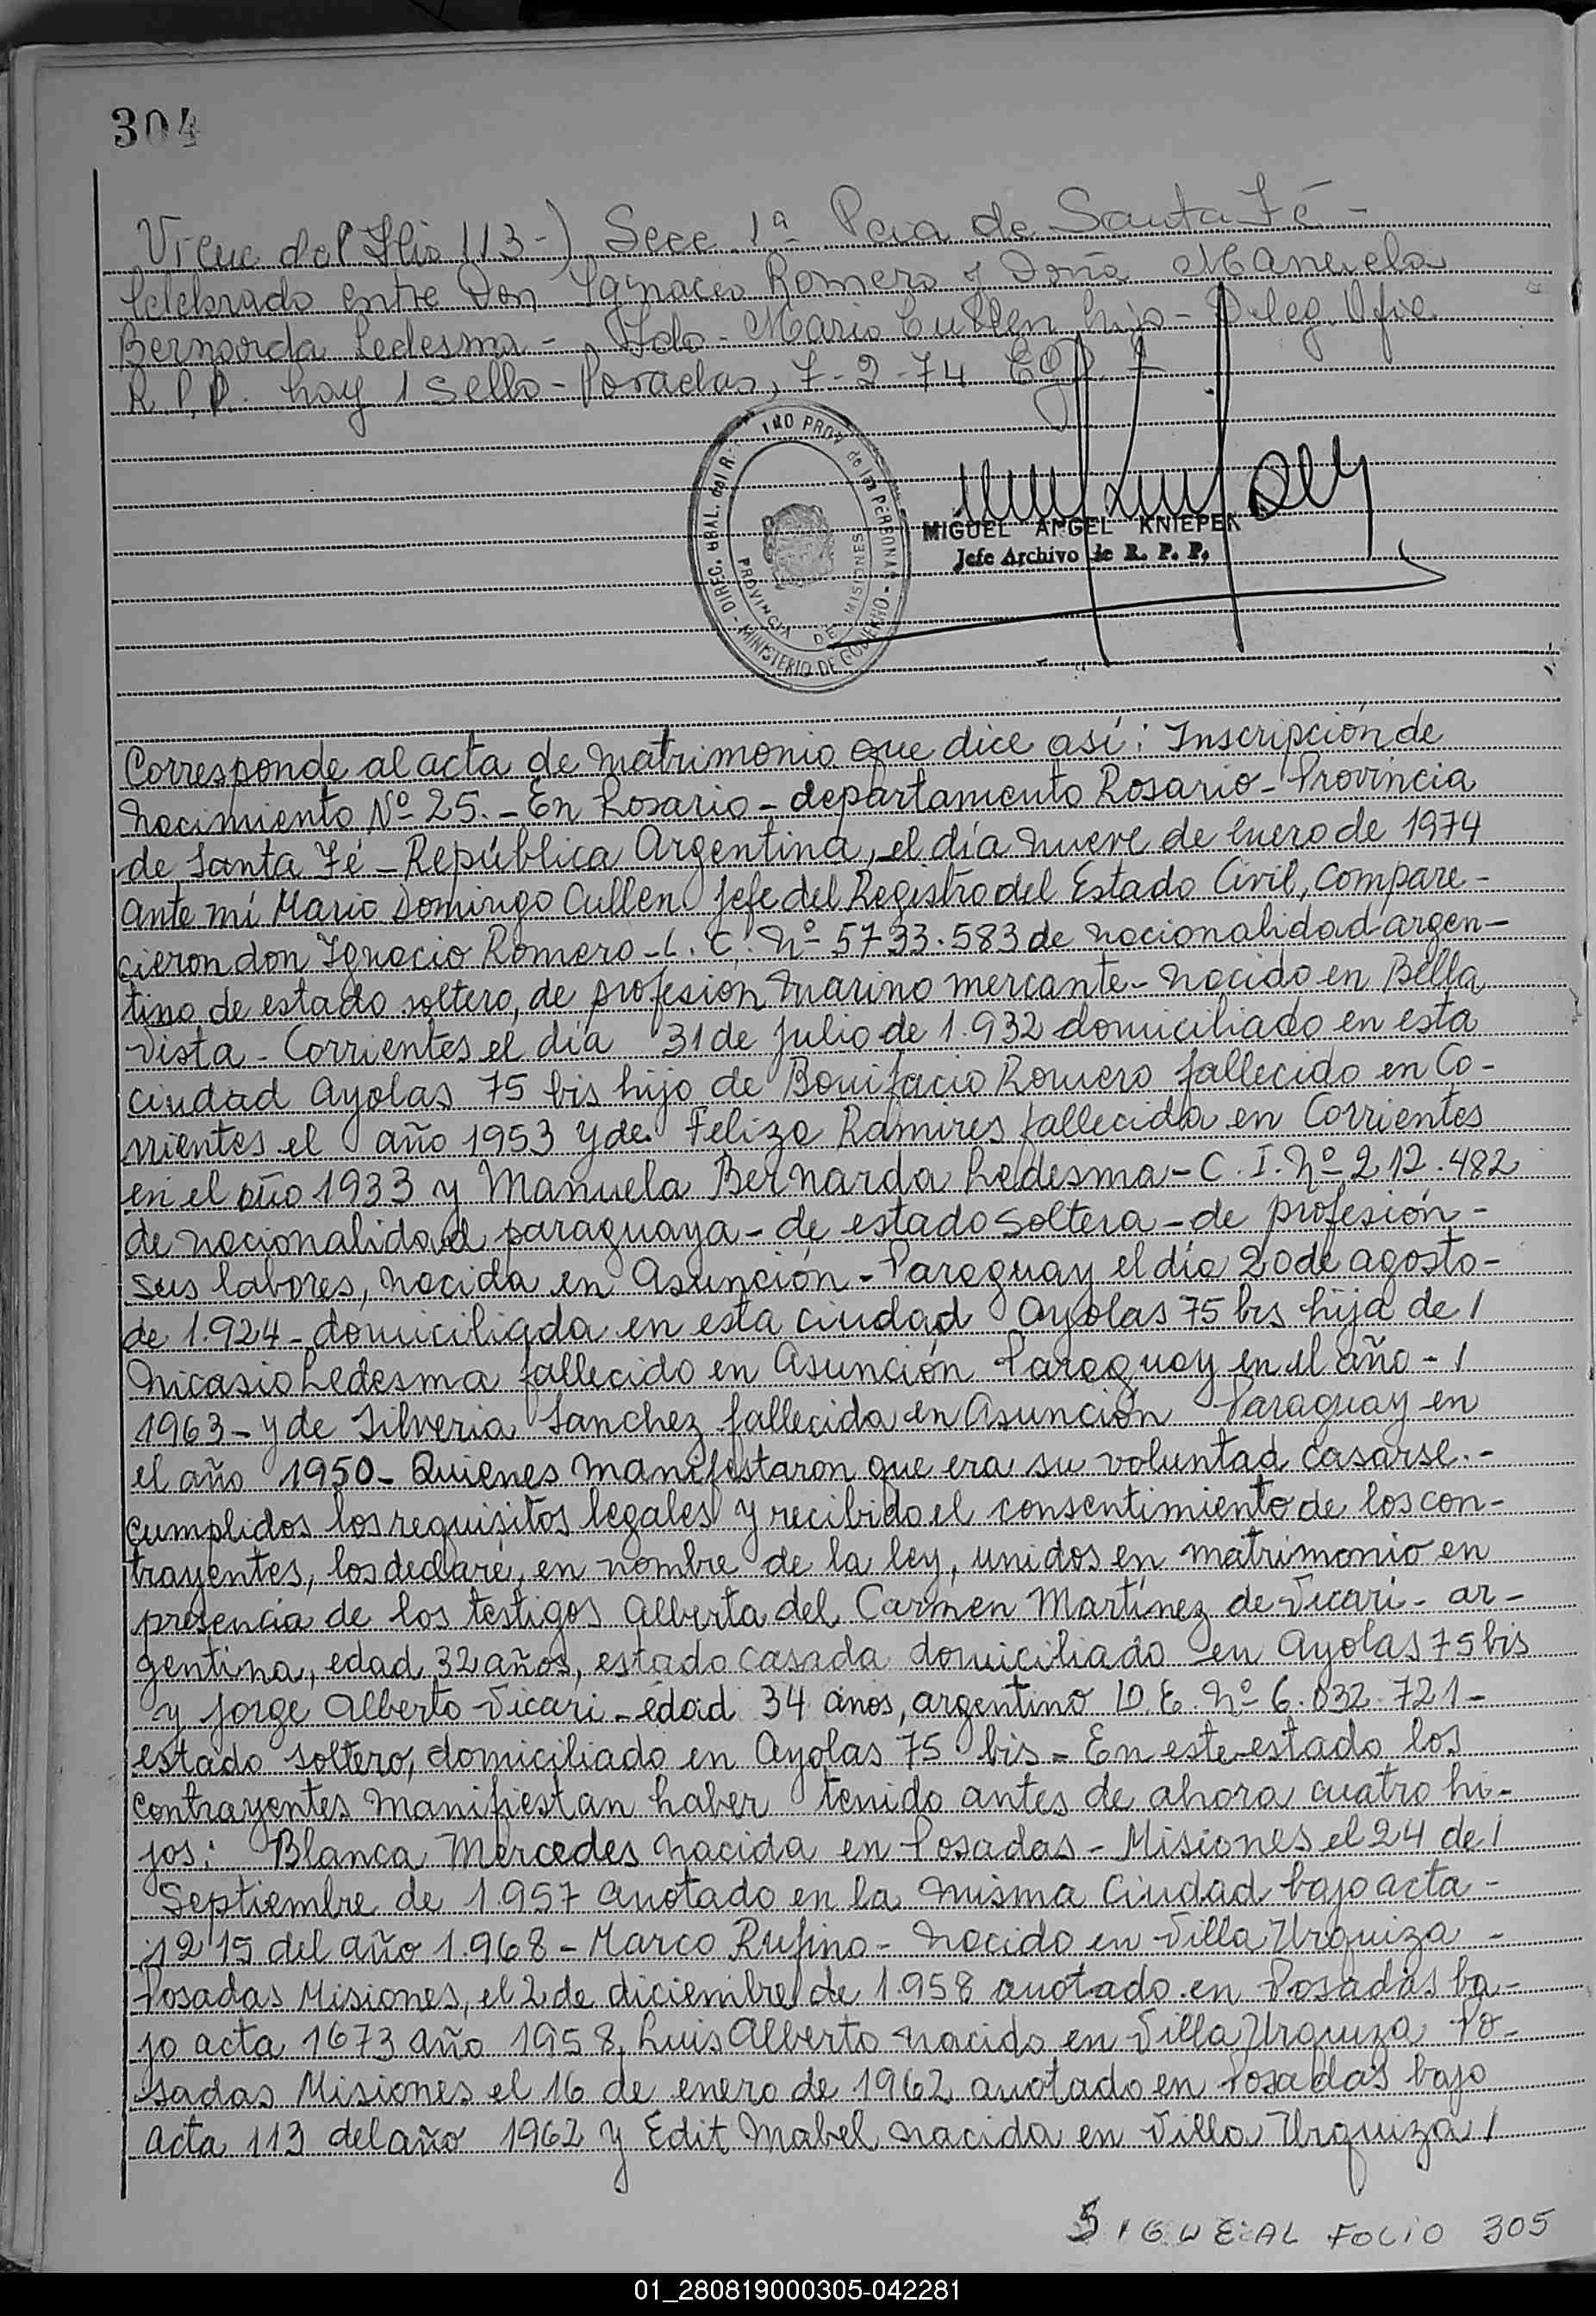 304
Viene del flio 113-) Secc 1ª Pcia de Santa Fé -
Celebrado entre Don Ignacio Romero y Doña Manuela
Bernarda Ledesma - Fdo. Mario Cullen hijo - Deleg. Ofic.
R. P. P. hay 1 sello - Posadas, 7-2-74
DIREC. GRAL. del R. PROV de las PERSONAS - MINISTERIO DE GOBIERNO -
PROVINCIA DE MISIONES
MIGUEL ANGEL KNIEPEK
Jefe Archivo de R. P. P.
Corresponde al acta de matrimonio que dice así: Inscripción de
nacimiento Nº 25. - En Rosario - departamento Rosario - Provincia
de Santa Fé - República Argentina, el día nueve de Enero de 1974
ante mí Mario Domingo Cullen Jefe del Registro del Estado Civil, compare-
cieron don Ignacio Romero - L. C. Nº 5733.583 de nacionalidad argen-
tino de estado soltero, de profesión marino mercante - nacido en Bella
Vista - Corrientes el día 31 de Julio de 1.932 domiciliado en esta
ciudad Ayolas 75 bis hijo de Bonifacio Romero fallecido en Co-
rrientes el año 1953 y de Feliza Ramires fallecida en Corrientes
en el año 1933 y Manuela Bernarda Ledesma - C. I. Nº 212.482
de nacionalidad paraguaya - de estado soltera - de profesión -
sus labores, nacida en Asunción - Paraguay el día 20 de agosto -
de 1.924 - domiciliada en esta ciudad Ayolas 75 bis hija de /
Nicasio Ledesma fallecido en Asunción Paraguay en el año - /
1963 - y de Silveria Sanchez fallecida en Asunción Paraguay en
el año 1950 - Quienes manifestaron que era su voluntad casarse. -
Cumplidos los requisitos legales y recibido el consentimiento de los con-
trayentes, los declaré, en nombre de la ley, unidos en matrimonio en
presencia de los testigos Alberta del Carmen Martínez de Vicari - ar-
gentina, edad 32 años, estado casada domiciliado en Ayolas 75 bis
y Jorge Alberto Vicari - edad 34 años, argentino D. E. Nº 6.032.721 -
estado soltero, domiciliado en Ayolas 75 bis - En este estado los
contrayentes manifiestan haber tenido antes de ahora cuatro hi-
jos: Blanca Mercedes nacida en Posadas - Misiones el 24 de /
Septiembre de 1.957 anotado en la misma Ciudad bajo acta -
1215 del año 1.968 - Marco Rufino - nacido en Villa Urquiza -
Posadas Misiones, el 2 de diciembre de 1.958 anotado en Posadas ba-
jo acta 1673 año 1958, Luis Alberto nacido en Villa Urquiza Po-
sadas Misiones el 16 de enero de 1962 anotado en Posadas bajo
acta 113 del año 1962 y Edit Mabel nacida en Villa Urquiza /
SIGUE AL FOLIO 305
01_280819000305-042281